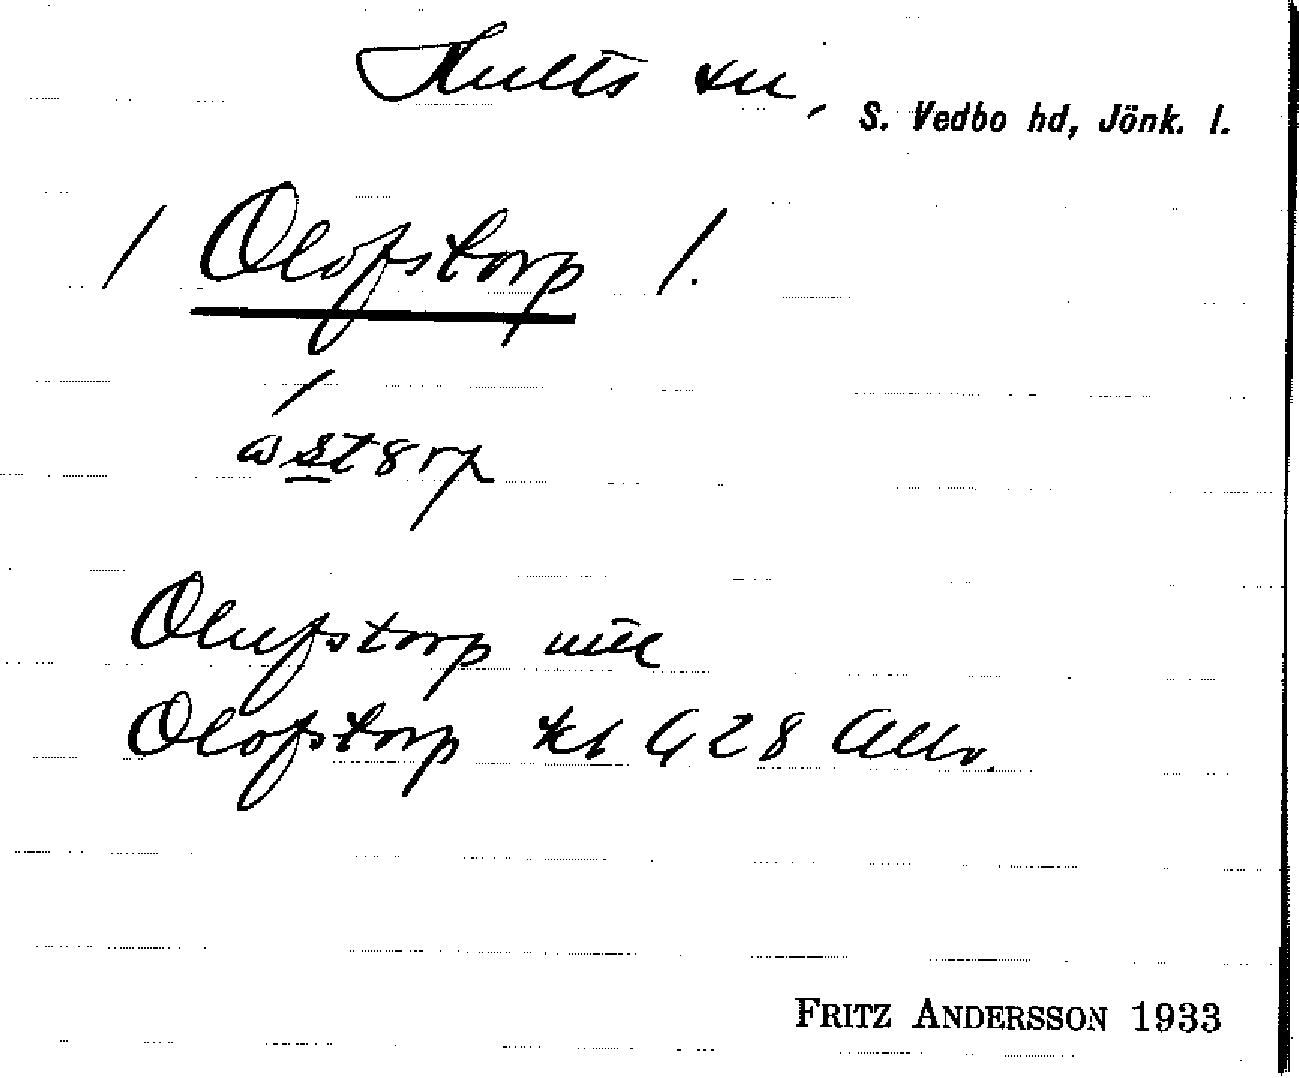 Hults sn, S. Vedbo hd, Jönk. l.
/ Olofstorp /.
Olufstorp
Olofstorp kt G 28 Allv.
FRITZ ANDERSSON 1933